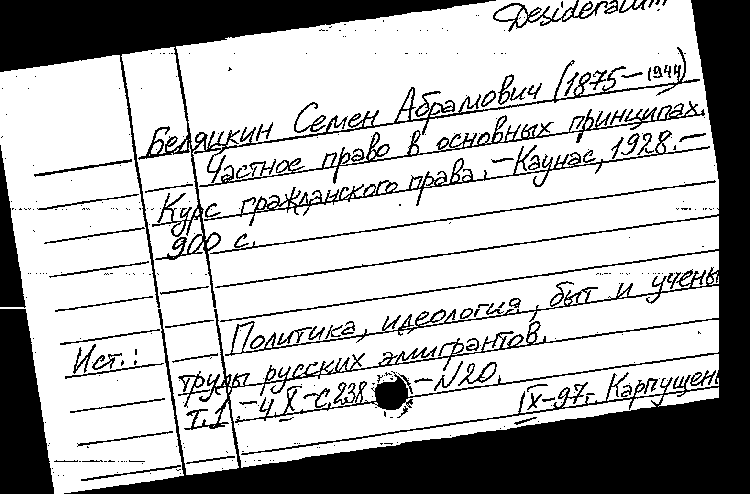 Desideratum
Беляцкин Семен Абрамович (1875-1944)
Частное право в основных принципах.
Курс гражданского права. - Каунас, 1928. -
900 с.
Ист.: Политика, идеология, быт и учены
труды русских эмигрантов.
Т.1. - Ч X. - С.238 - N 20.
IX-97г. Карпущен